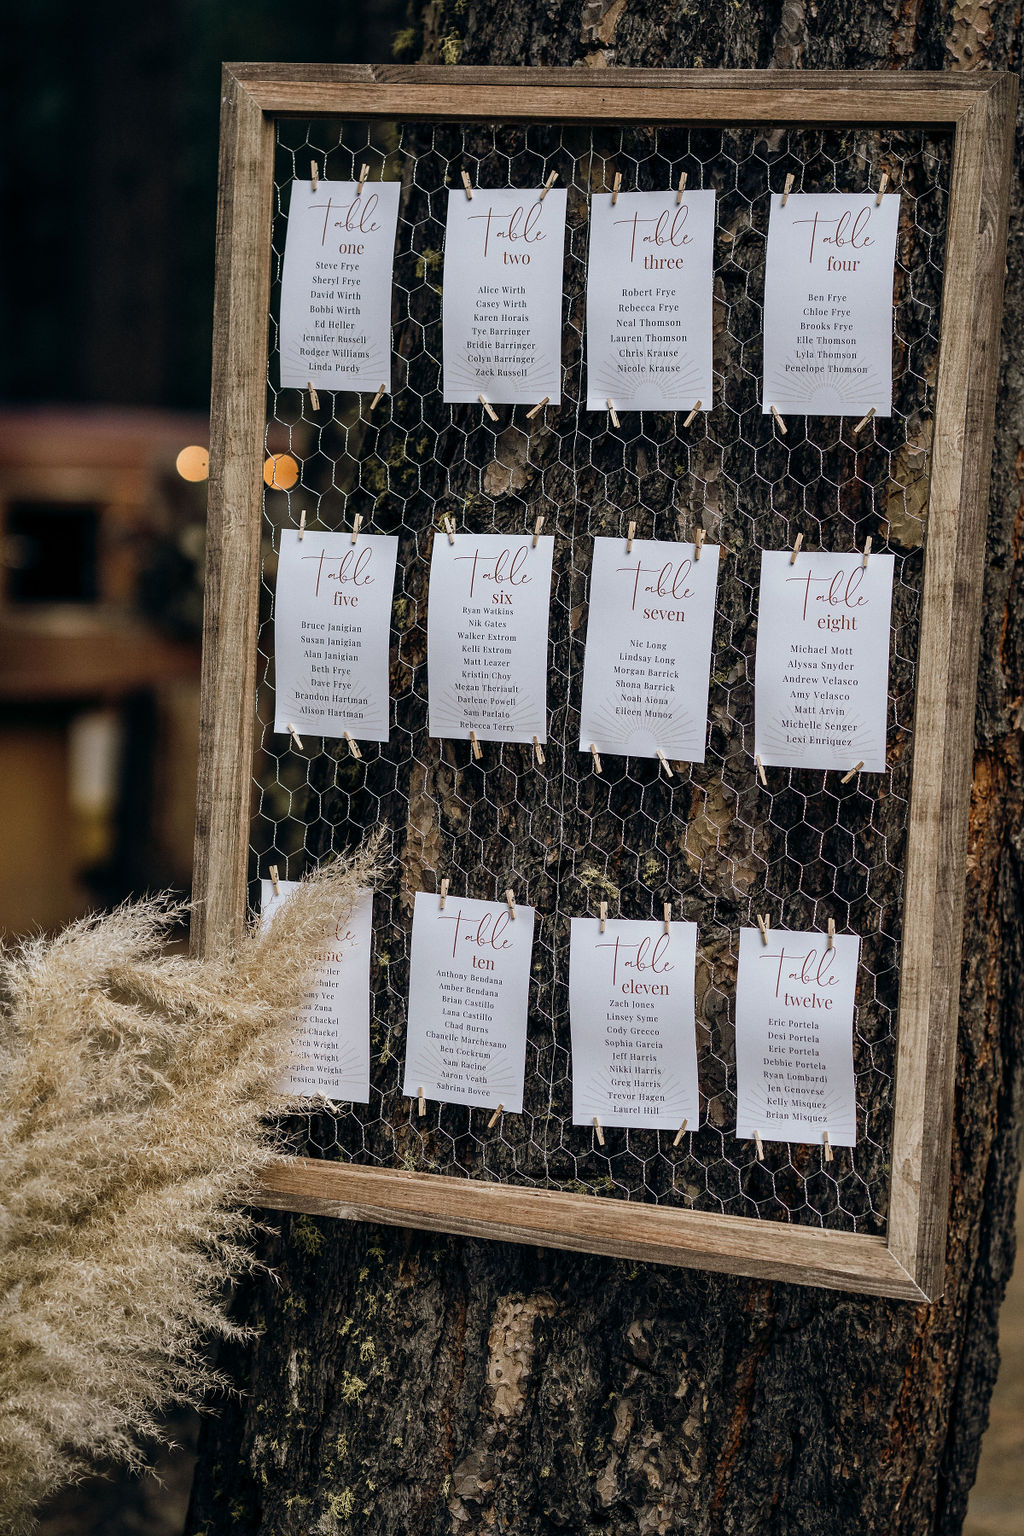 Table
one
Steve Frye
Sheryl Frye
David Wirth
Bobbi Wirth
Ed Heller
Jennifer Russell
Rodger Williams
Linda Purdy
Table
two
Alice Wirth
Casey Wirth
Karen Horais
Tye Barringer
Bridie Barringer
Colyn Barringer
Zack Russell
Table
three
Robert Frye
Rebecca Frye
Neal Thomson
Lauren Thomson
Chris Krause
Nicole Krause
Table
four
Ben Frye
Chloe Frye
Brooks Frye
Elle Thomson
Lyla Thomson
Penelope Thomson
Table
five
Bruce Janigian
Susan Janigian
Alan Janigian
Beth Frye
Dave Frye
Brandon Hartman
Alison Hartman
Table
six
Ryan Watkins
Nik Gates
Walker Extrom
Kelli Extrom
Matt Leazer
Kristin Choy
Megan Theriault
Darlene Powell
Sam Parlato
Rebecca Terry
Table
seven
Nic Long
Lindsay Long
Morgan Barrick
Shona Barrick
Noah Aiona
Eileen Munoz
Table
eight
Michael Mott
Alyssa Snyder
Andrew Velasco
Amy Velasco
Matt Arvin
Michelle Senger
Lexi Enriquez
Yee
Zuna
Chackel
Chackel
Wright
Wright
Wright
Jessica David
Table
ten
Anthony Bendana
Amber Bendana
Brian Castillo
Lana Castillo
Chad Burns
Chanelle Marchesano
Ben Cockrum
Sam Racine
Aaron Veath
Sabrina Bovee
Table
eleven
Zach Jones
Linsey Syme
Cody Grecco
Sophia Garcia
Jeff Harris
Nikki Harris
Greg Harris
Trevor Hagen
Laurel Hill
Table
twelve
Eric Portela
Desi Portela
Eric Portela
Debbie Portela
Ryan Lombardi
Jen Genovese
Kelly Misquez
Brian Misquez